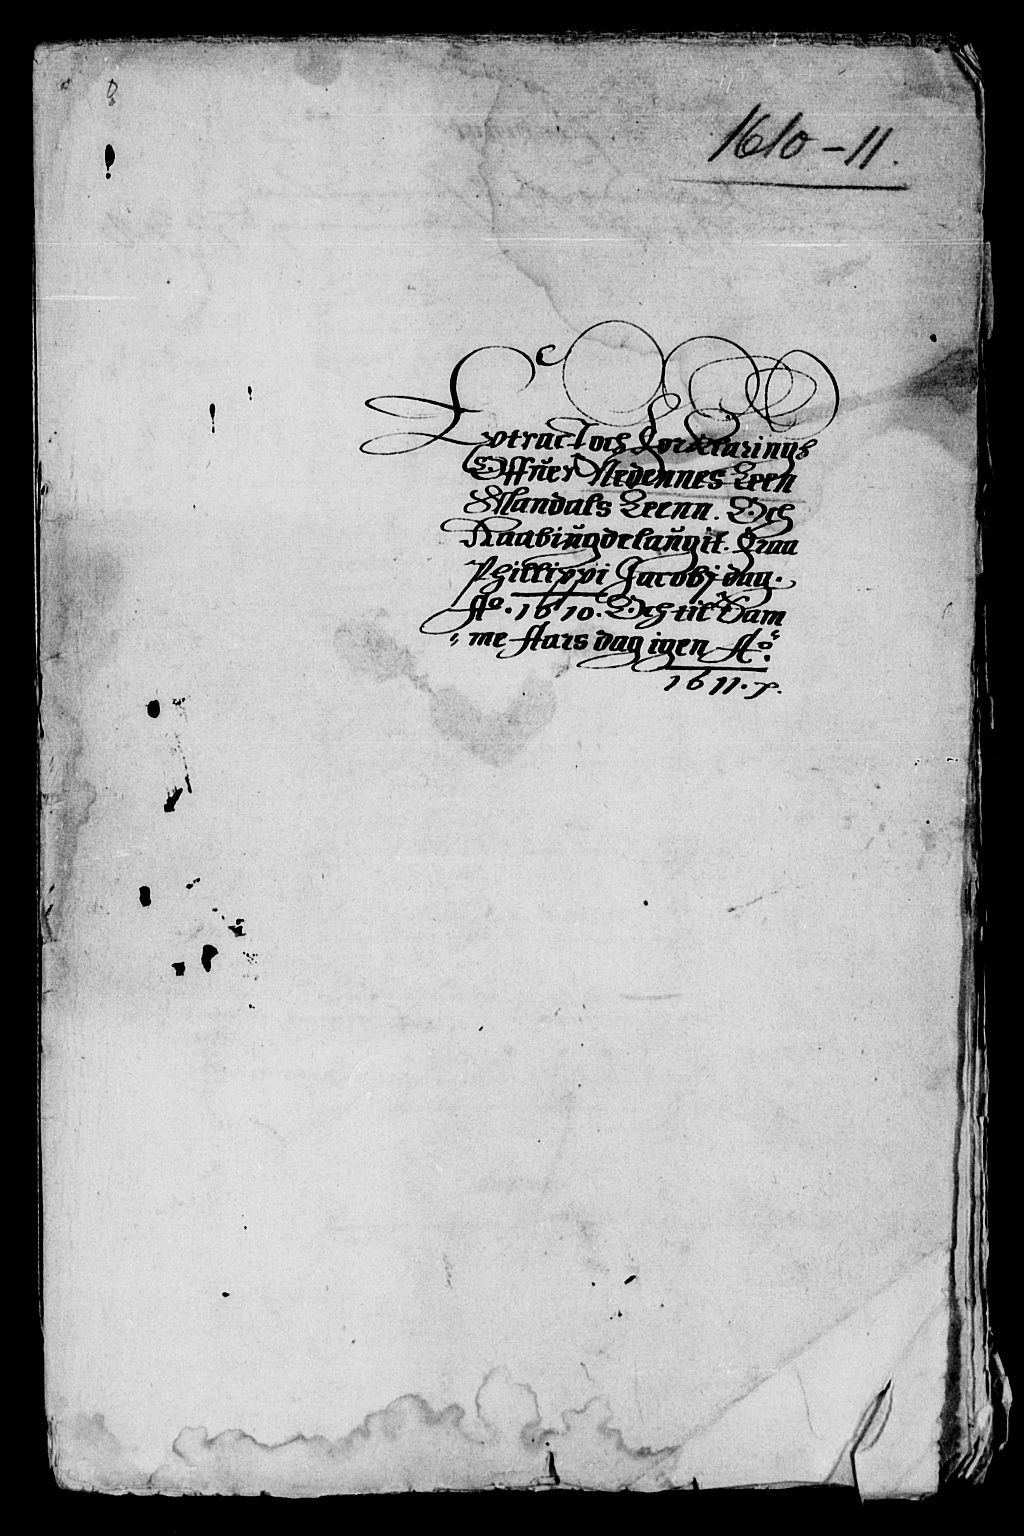 1610-11.
Extract och Forklarings
Offuer Nedennes Leen
Mandals Leenn. Och
Raabiugdelauget. Fraa
Phillippi Jacobj dag.
Ao. 1610. Och til Sam
me Aars dag igen Ao.
1611.